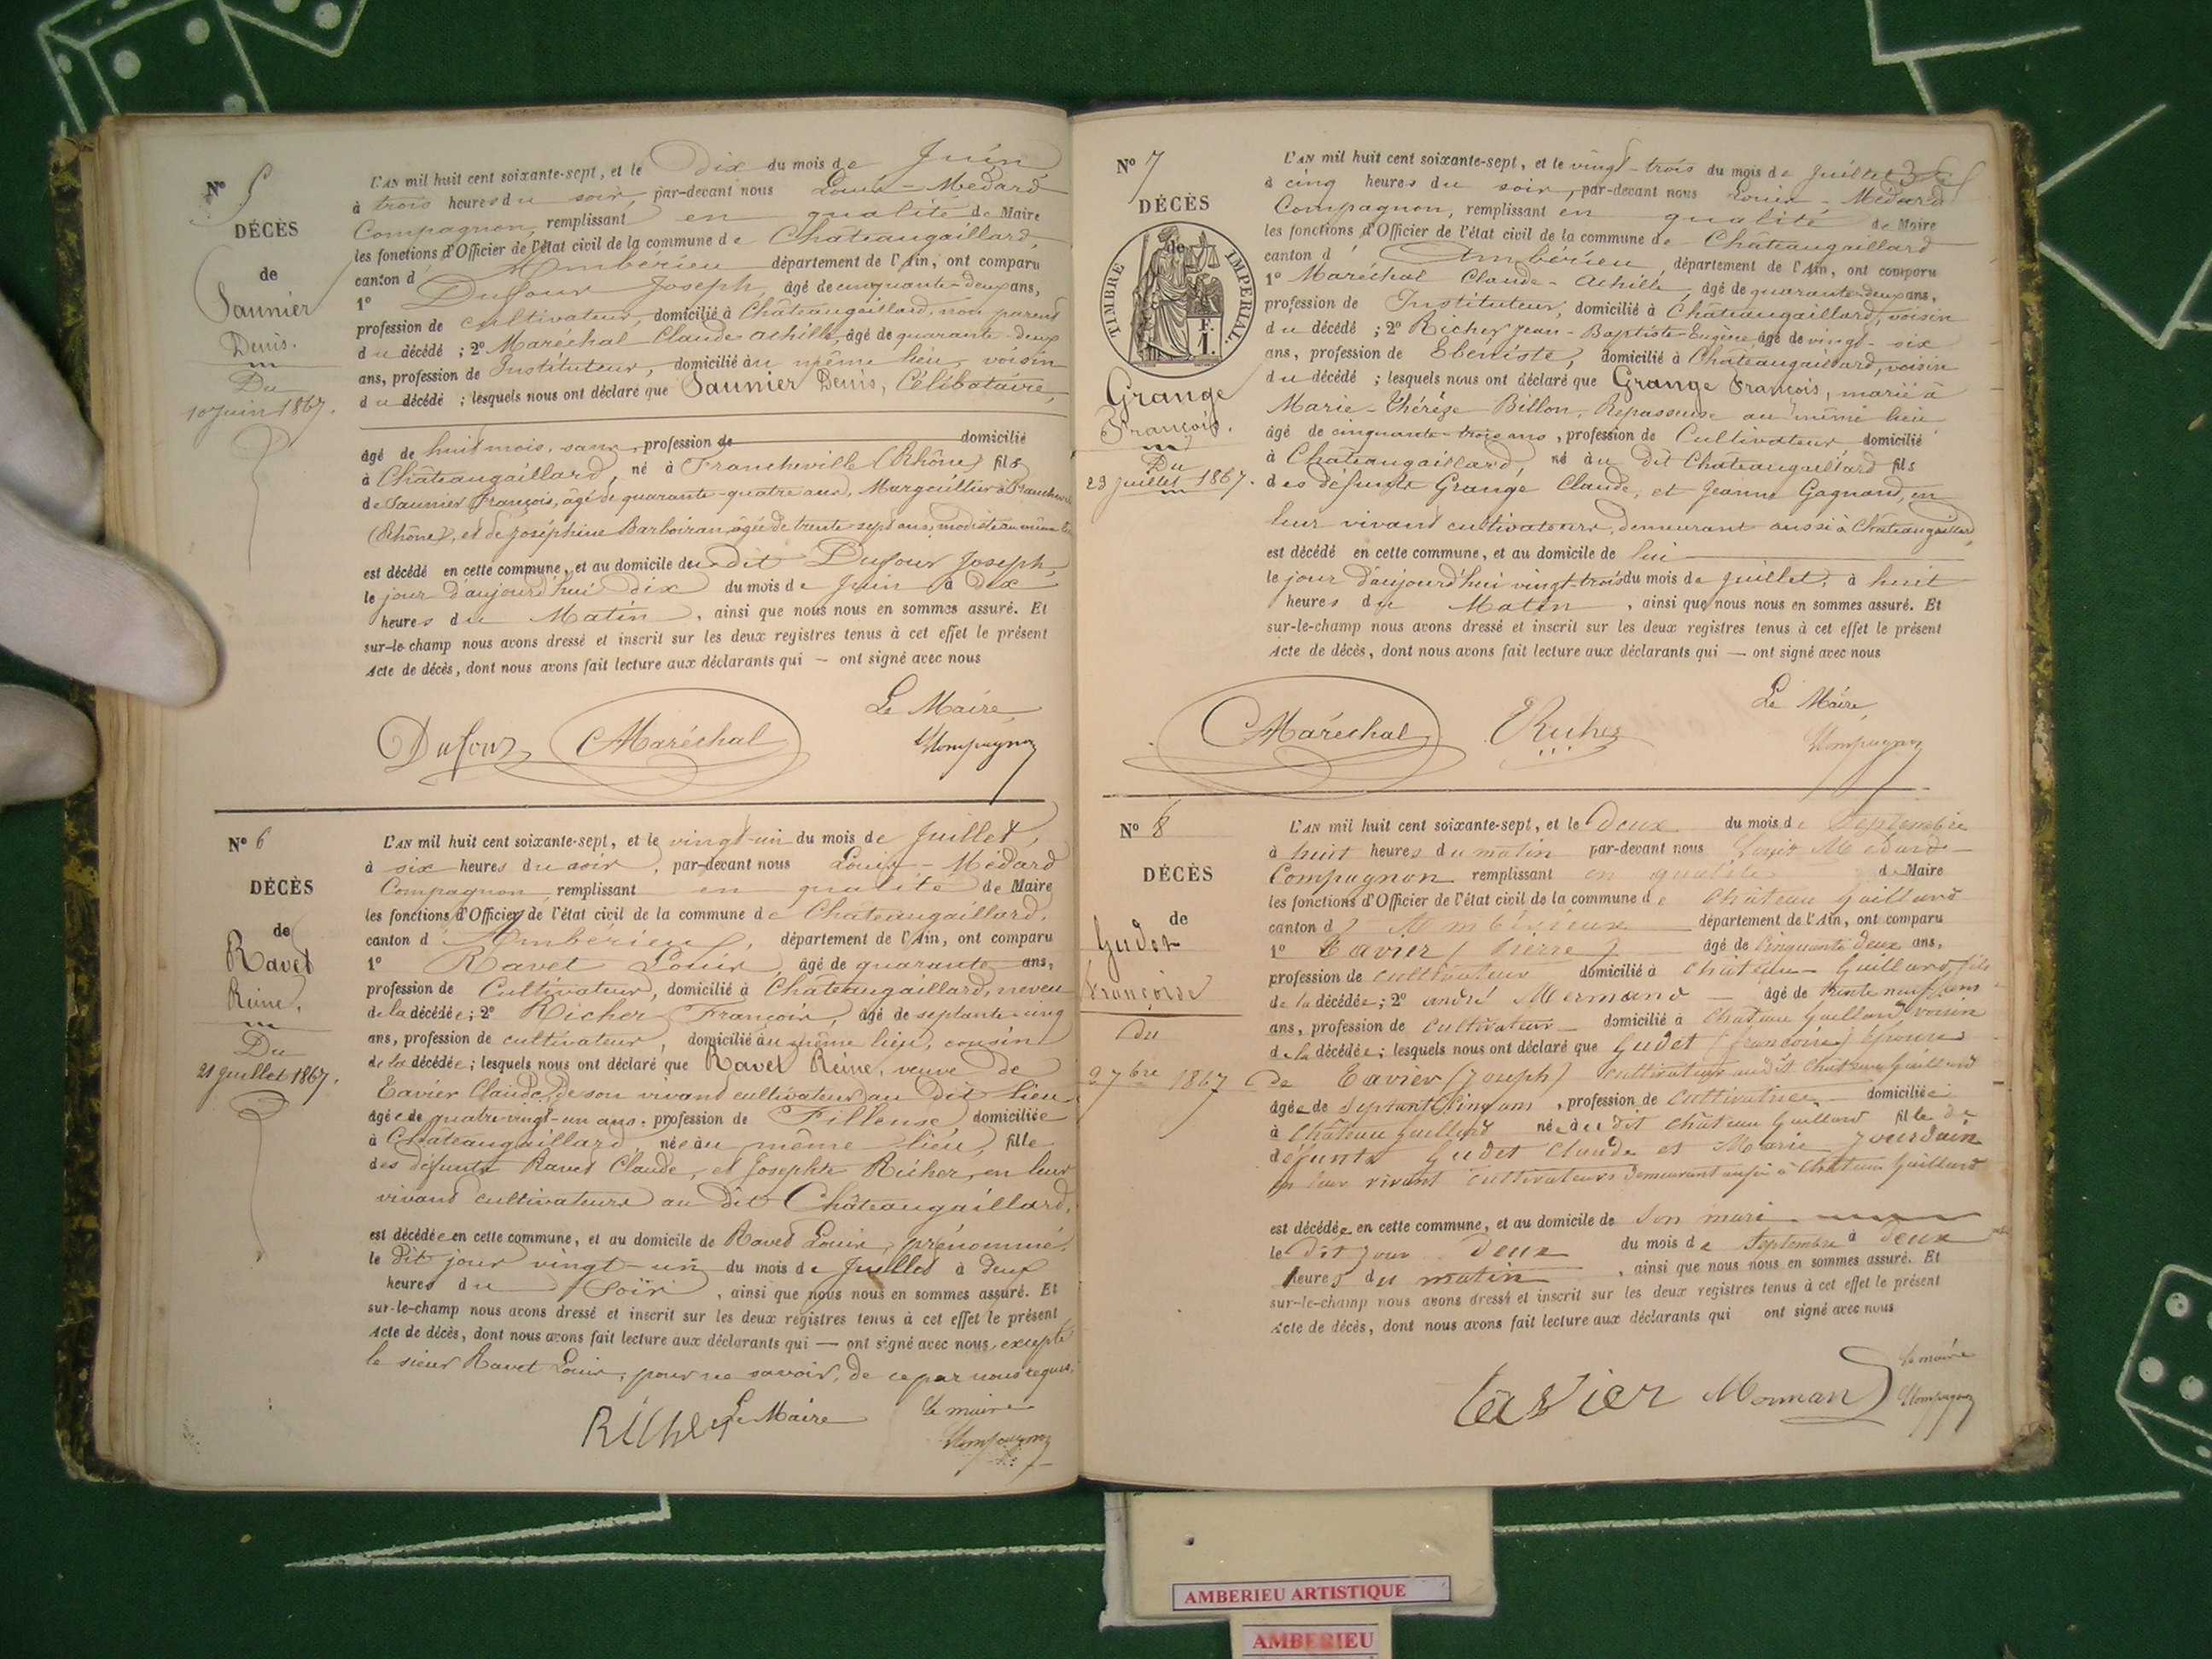 N° 5
DÉCÈS
de
Saunier
Denis.
Du
10 Juin 1867.
L'AN mil huit cent soixante-sept, et le Dix du mois de Juin
à trois heures du soir, par-devant nous Louis-Médard
Compagnon, remplissant en qualité de Maire
les fonctions d'Officier de l'état civil de la commune de Châteaugaillard,
canton d'Ambérieu département de l'Ain, ont comparu
1° Dufour Joseph, âgé de cinquante-deux ans,
profession de cultivateur, domicilié à Châteaugaillard, non parent
du décédé ; 2° Maréchal Claude Achille, âgé de quarante-deux
ans, profession de Instituteur, domicilié au même lieu, voisin
du décédé ; lesquels nous ont déclaré que Saunier Denis, Célibataire,
âgé de huit mois, sans profession de domicilié
à Châteaugaillard, né à Francheville (Rhône) fils
de Saunier François, âgé de quarante-quatre ans, Marguillier à
(Rhône), et de Joséphine Barboiran, âgée de trente-sept ans, modiste au même
est décédé en cette commune, et au domicile du dit Dufour Joseph,
le jour d'aujourd'hui dix du mois de Juin à Dix
heures du Matin, ainsi que nous nous en sommes assuré. Et
sur-le-champ nous avons dressé et inscrit sur les deux registres tenus à cet effet le présent
Acte de décès, dont nous avons fait lecture aux déclarants qui — ont signé avec nous
Le Maire,
Dufour Maréchal Compagnon
N° 6
DÉCÈS
de
Ravet
Reine,
Du
21 Juillet 1867.
L'AN mil huit cent soixante-sept, et le vingt-un du mois de Juillet,
à six heures du soir, par-devant nous Louis-Médard
Compagnon remplissant en qualité de Maire
les fonctions d'Officier de l'état civil de la commune de Châteaugaillard,
canton d'Ambérieu, département de l'Ain, ont comparu
1° Ravet Louis, âgé de quarante ans,
profession de Cultivateur, domicilié à Châteaugaillard, neveu
de la décédée ; 2° Richer François, âgé de septante-cinq
ans, profession de cultivateur, domicilié au même lieu, cousin
de la décédée ; lesquels nous ont déclaré que Ravet Reine, veuve de
Tavier Claude, de son vivant cultivateur au Dit lieu
âgée de quatre-vingt-un ans, profession de Fileuse, domiciliée
à Châteaugaillard née au même lieu, fille
des défunts Ravet Claude, et Josephte Richer, en leur
vivant cultivateurs au Dit Châteaugaillard,
est décédée en cette commune, et au domicile de Ravet Louis, prénommé,
le dit jour vingt-un du mois de Juillet à deux
heures du Soir, ainsi que nous nous en sommes assuré. Et
sur-le-champ nous avons dressé et inscrit sur les deux registres tenus à cet effet le présent
Acte de décès, dont nous avons fait lecture aux déclarants qui — ont signé avec nous, excepté
le sieur Ravet Louis, pour ne savoir, de ce par nous requis.
Richer Le Maire le maire
Compagnon
N° 7
DÉCÈS
de
TIMBRE IMPERIAL.
1 F.
Grange
François.
Du
23 Juillet 1867.
L'AN mil huit cent soixante-sept, et le vingt-trois du mois de Juillet
à cinq heures du soir, par-devant nous Louis-Médard
Compagnon, remplissant en qualité de Maire
les fonctions d'Officier de l'état civil de la commune de Châteaugaillard
canton d'Ambérieu, département de l'Ain, ont comparu
1° Maréchal Claude-Achille, âgé de quarante-deux ans,
profession de Instituteur, domicilié à Châteaugaillard, voisin
du décédé ; 2° Richer Jean-Baptiste-Eugène, âgé de vingt-six
ans, profession de Ebéniste, domicilié à Châteaugaillard, voisin
du décédé ; lesquels nous ont déclaré que Grange François, marié à
Marie-Thérèse Billon, Repasseuse au même lieu
âgé de cinquante-trois ans, profession de Cultivateur domicilié
à Châteaugaillard, né au dit Châteaugaillard fils
des défunts Grange Claude, et Jeanne Gagnand, en
leur vivant cultivateurs, demeurant aussi à Châteaugaillard,
est décédé en cette commune, et au domicile de lui
le jour d'aujourd'hui vingt-trois du mois de Juillet, à huit
heures du Matin, ainsi que nous nous en sommes assuré. Et
sur-le-champ nous avons dressé et inscrit sur les deux registres tenus à cet effet le présent
Acte de décès, dont nous avons fait lecture aux déclarants qui — ont signé avec nous
Le Maire,
Maréchal Richer Compagnon
N° 8
DÉCÈS
de
Gudet
françoise
du
2 7bre 1867
L'AN mil huit cent soixante-sept, et le Deux du mois de Septembre
à huit heures du matin par-devant nous Louis Médard
Compagnon remplissant en qualité de Maire
les fonctions d'Officier de l'état civil de la commune de Château gaillard
canton d'Ambérieux département de l'Ain, ont comparu
1° Tavier (Pierre) âgé de cinquante deux ans,
profession de cultivateur domicilié à Château-Gaillard fils
de la décédée ; 2° andré Mermand âgé de trente neuf ans
ans, profession de cultivateur domicilié à Château gaillard voisin
de la décédée ; lesquels nous ont déclaré que Gudet (françoise) épouse
de Tavier (Joseph) cultivateur au dit Château gaillard
âgée de Septante cinq ans, profession de Cultivatrice domiciliée
à Château Gaillard née au dit château Gaillard fille de
défunts Gudet Claude et Marie Jourdain
en leur vivant Cultivateurs demeurant aussi à Château Gaillard
est décédée en cette commune, et au domicile de son mari
le dit jour Deux du mois de Septembre à deux
heures du matin, ainsi que nous nous en sommes assuré. Et
sur-le-champ nous avons dressé et inscrit sur les deux registres tenus à cet effet le présent
Acte de décès, dont nous avons fait lecture aux déclarants qui ont signé avec nous
le maire
tavier Mermand Compagnon
AMBERIEU ARTISTIQUE
AMBERIEU